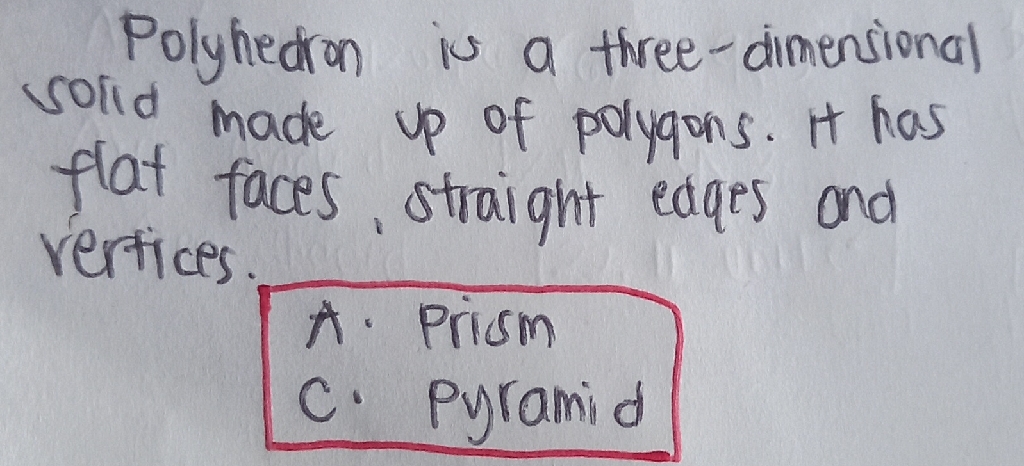 Polyhedron is a three-dimensional
solid made up of polygons. It has
flat faces, straight edges and
vertices.
A. Prism
C. Pyramid